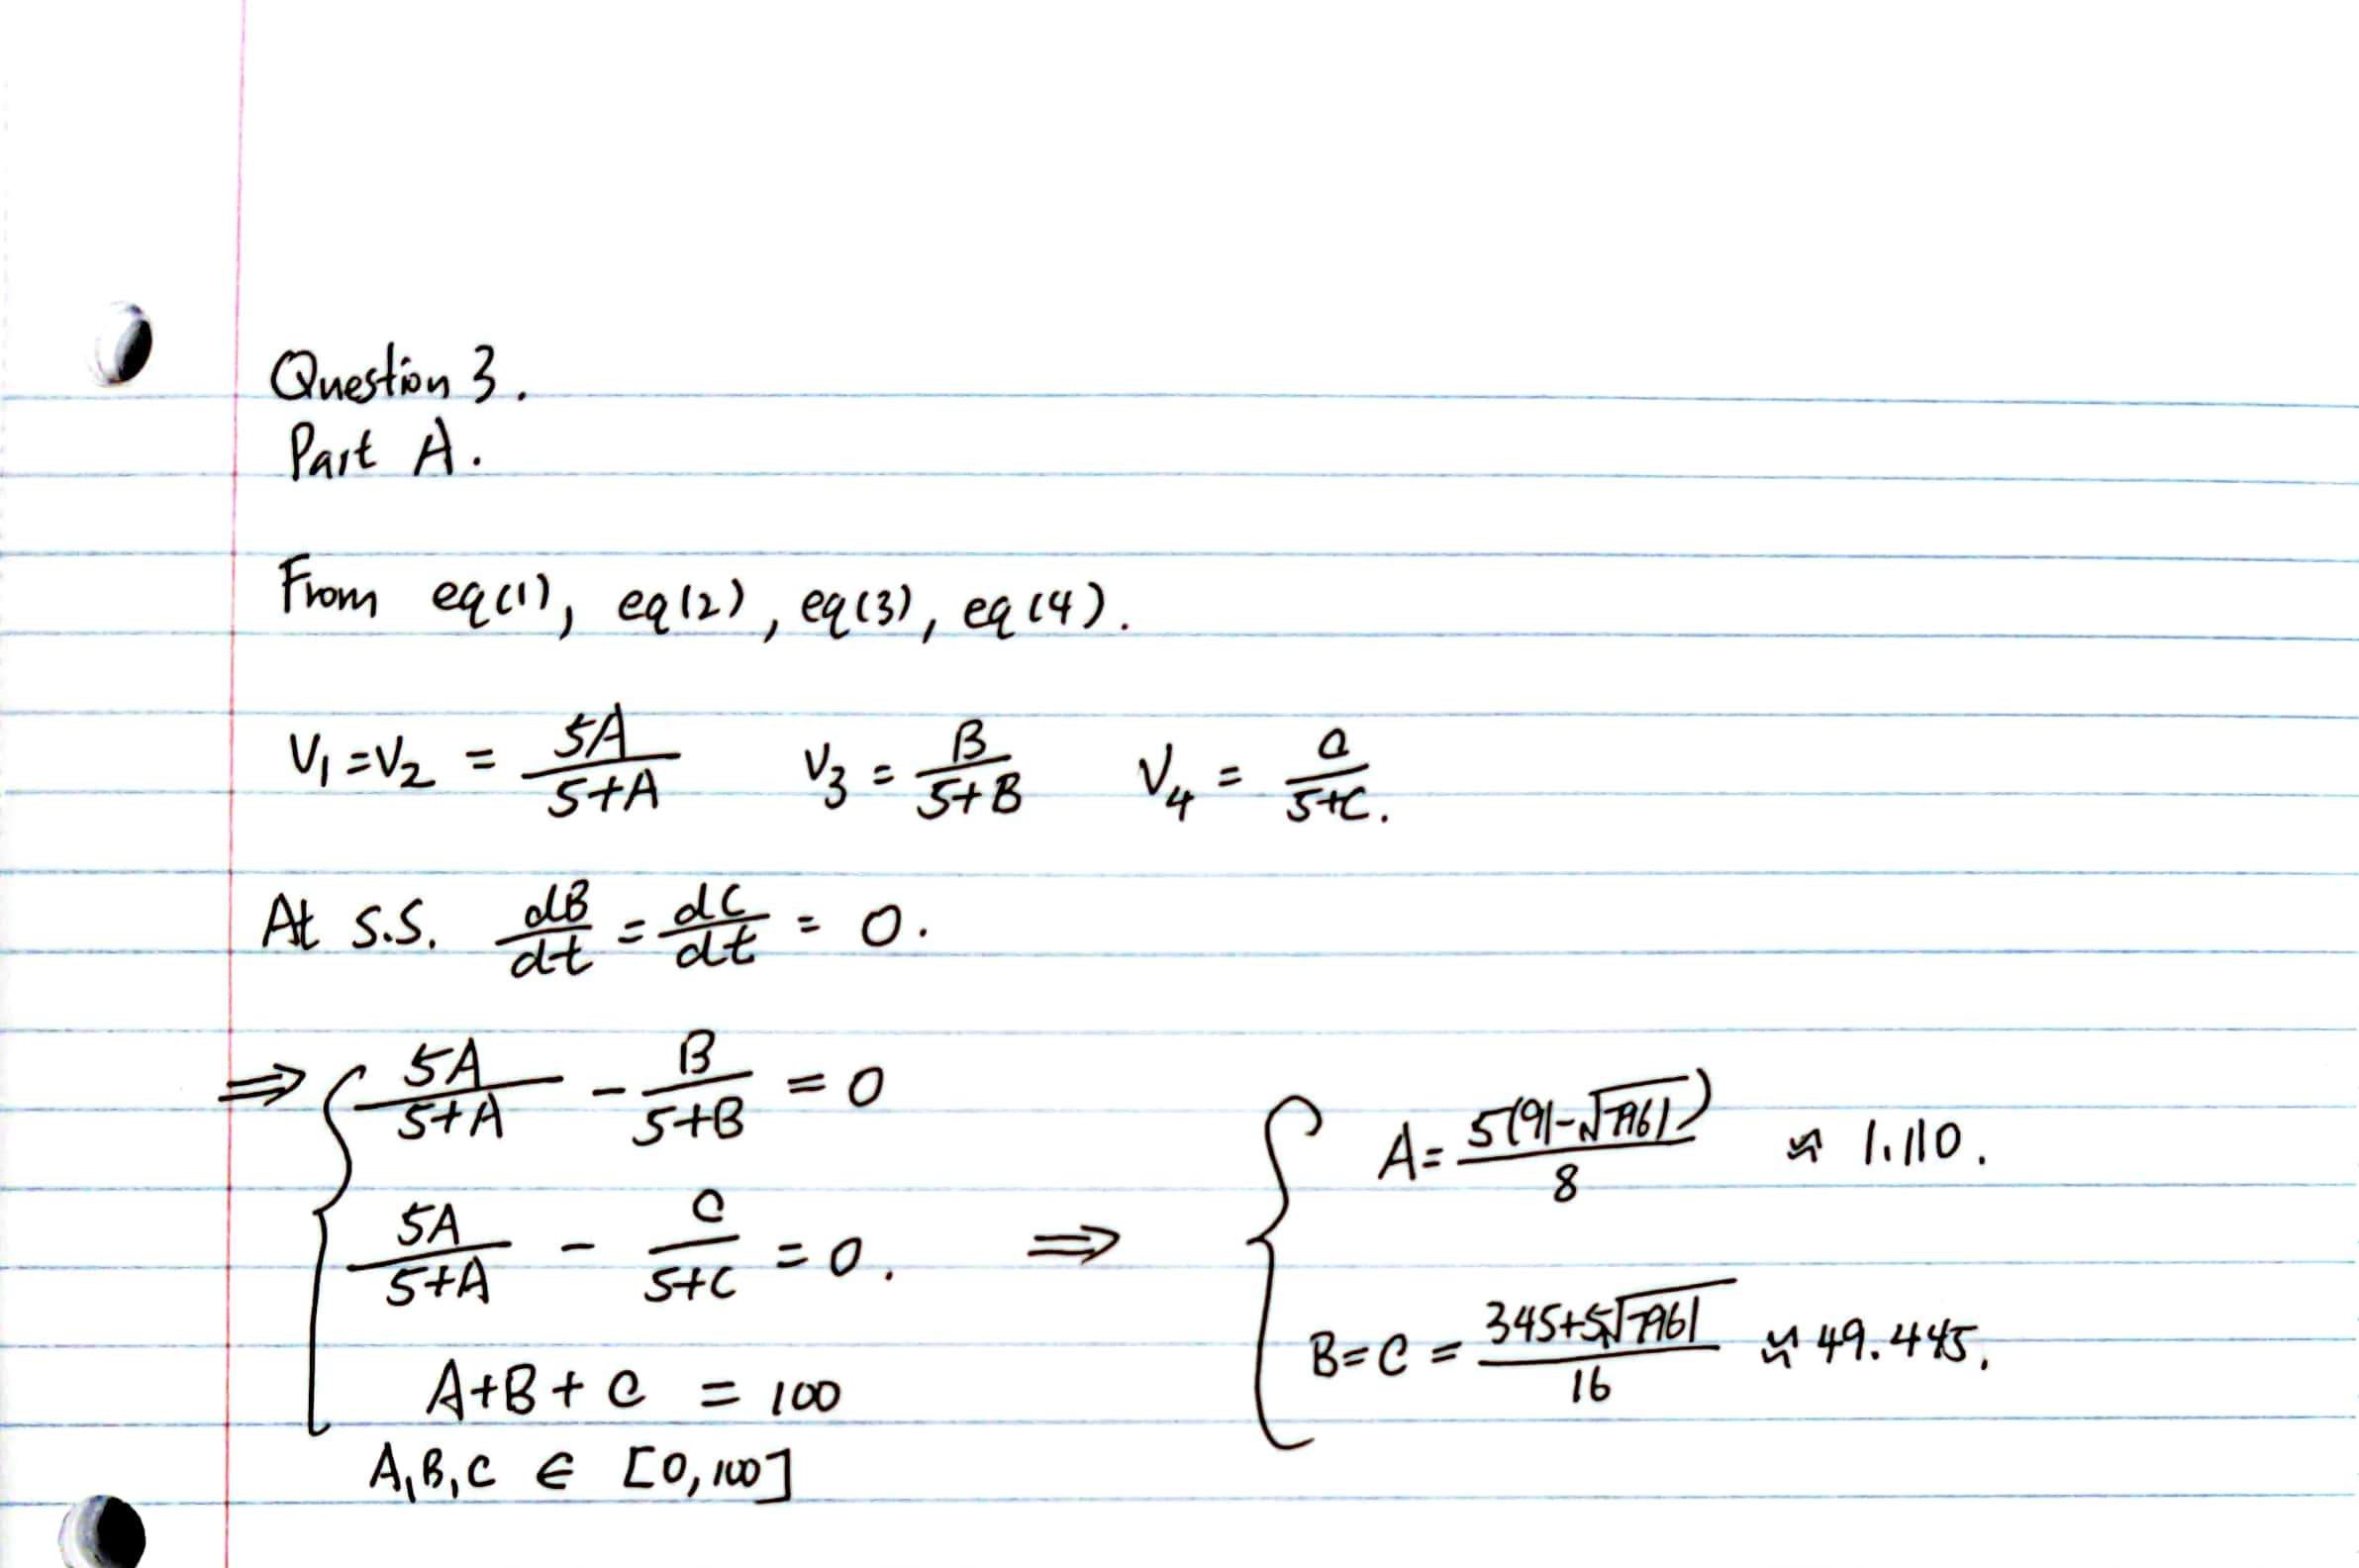 Question 3.
Part A.
From eq(1), eq(2), eq(3), eq(4).
V₁=V₂ = 5A/(5+A)    V₃ = B/(5+B)    V₄ = C/(5+C).
At S.S. dB/dt = dC/dt = 0.
⇒ { 5A/(5+A) - B/(5+B) = 0
5A/(5+A) - C/(5+C) = 0.
A+B+C = 100
A,B,C ∈ [0,100]
⇒ { A = 5(91-√7961)/8 ≈ 1.110.
B=C = (345+5√7961)/16 ≈ 49.445.